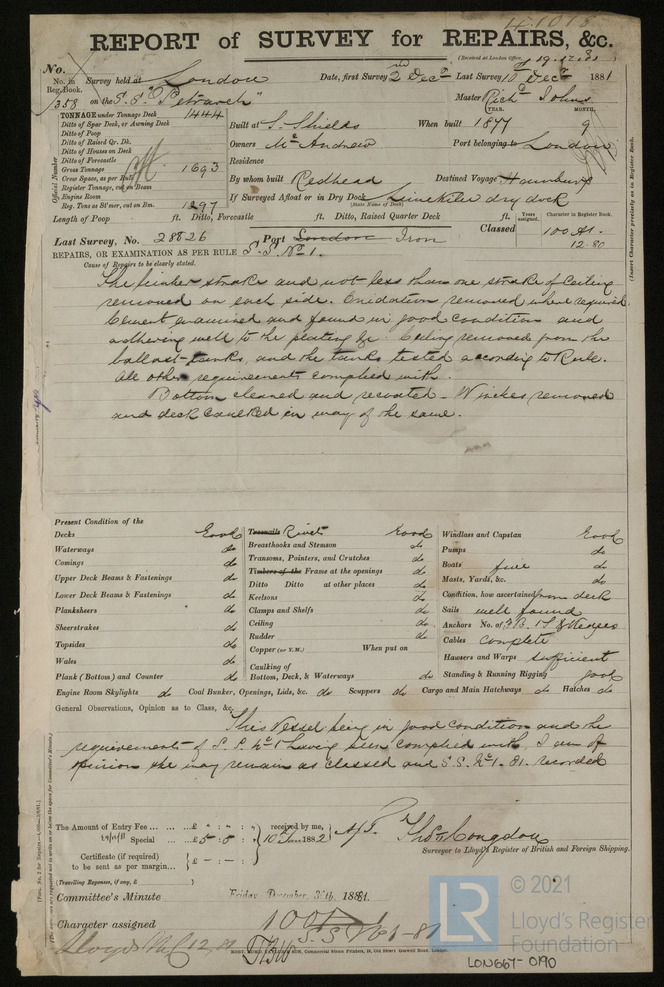 REPORT of SURVEY for REPAIRS, &c.
(Received at London Office,
No.
No. in Reg. Book. Survey held at London Date, first Survey 2nd Decr Last Survey 10th Decr 1881
358 on the S.S. "Petrarch" Master Richd Johns
TONNAGE under Tonnage Deck 1444
YEAR. MONTH.
Ditto of Spar Deck, or Awning Deck
Built at S. Shields When built 1877 9
Ditto of Poop
Ditto of Raised Qr. Dk.
Owners McAndrew Port belonging to London
Ditto of Houses on Deck
Ditto of Forecastle
Residence
Gross Tonnage 1693
Gross Space, as per Rule
By whom built Redhead Destined Voyage Hamburg
Register Tonnage, cut on Beam
Engine Room
If Surveyed Afloat or in Dry Dock Limekiln dry dock
(State Name of Dock)
Reg. Tons as St'mer, cut on Bm. 1297
Official Number
Length of Poop ft. Ditto, Forecastle ft. Ditto, Raised Quarter Deck ft.
Years assigned. Character in Register Book.
Classed 100 A1.
12.80
(Insert Character precisely as in Register Book.
Last Survey, No. 28826 Port London Iron
REPAIRS, OR EXAMINATION AS PER RULE S.S. No 1.
Cause of Repairs to be clearly stated.
The limber strake and not less than one strake of Ceiling
removed on each side. Oxidation removed where required
Cement examined and found in good condition and
adhering well to the plating &c. Ceiling removed from the
ballast tanks, and the tanks tested according to Rule.
All other requirements complied with.
Bottom cleaned and recoated. Winches removed
and deck caulked in way of the same.
Present Condition of the
Decks Good
Waterways do
Comings do
Upper Deck Beams & Fastenings do
Lower Deck Beams & Fastenings do
Planksheers do
Sheerstrakes do
Topsides do
Wales do
Plank (Bottom) and Counter do
Treenails Rivets Good
Breasthooks and Stemson do
Transoms, Pointers, and Crutches do
Timbers of the Frame at the openings do
Ditto Ditto at other places do
Keelsons do
Clamps and Shelfs do
Ceiling do
Rudder do
Copper (or Y.M.) When put on
Caulking of
Bottom, Deck, & Waterways do
Windlass and Capstan Good
Pumps do
Boats five do
Masts, Yards, &c. do
Condition, how ascertained from deck
Sails well found
Anchors No. of 3 B. 1 S. & Kedges
Cables Complete
Hawsers and Warps sufficient
Standing & Running Rigging good
Engine Room Skylights do Coal Bunker, Openings, Lids, &c. do Scuppers do Cargo and Main Hatchways do Hatches do
General Observations, Opinion as to Class, &c.
This Vessel being in good condition and the
requirements of S.S. No 1 having been complied with, I am of
opinion she may remain as classed and S.S. No 1. 81. recorded
The Amount of Entry Fee ... ... £ " : " : "
Special ... £5 : 8 : "
received by me,
10 Jan. 1882
Certificate (if required) to be sent as per margin... £ - : - :
Thos Congdon
Surveyor to Lloyd's Register of British and Foreign Shipping.
(Travelling Expenses, if any, £ )
Committee's Minute Friday December 30th 1881.
Character assigned 100A1
S.S. No 1-81
Lloyds MC 12.81
© 2021
Lloyd's Register
Foundation
LR
LON667-0190